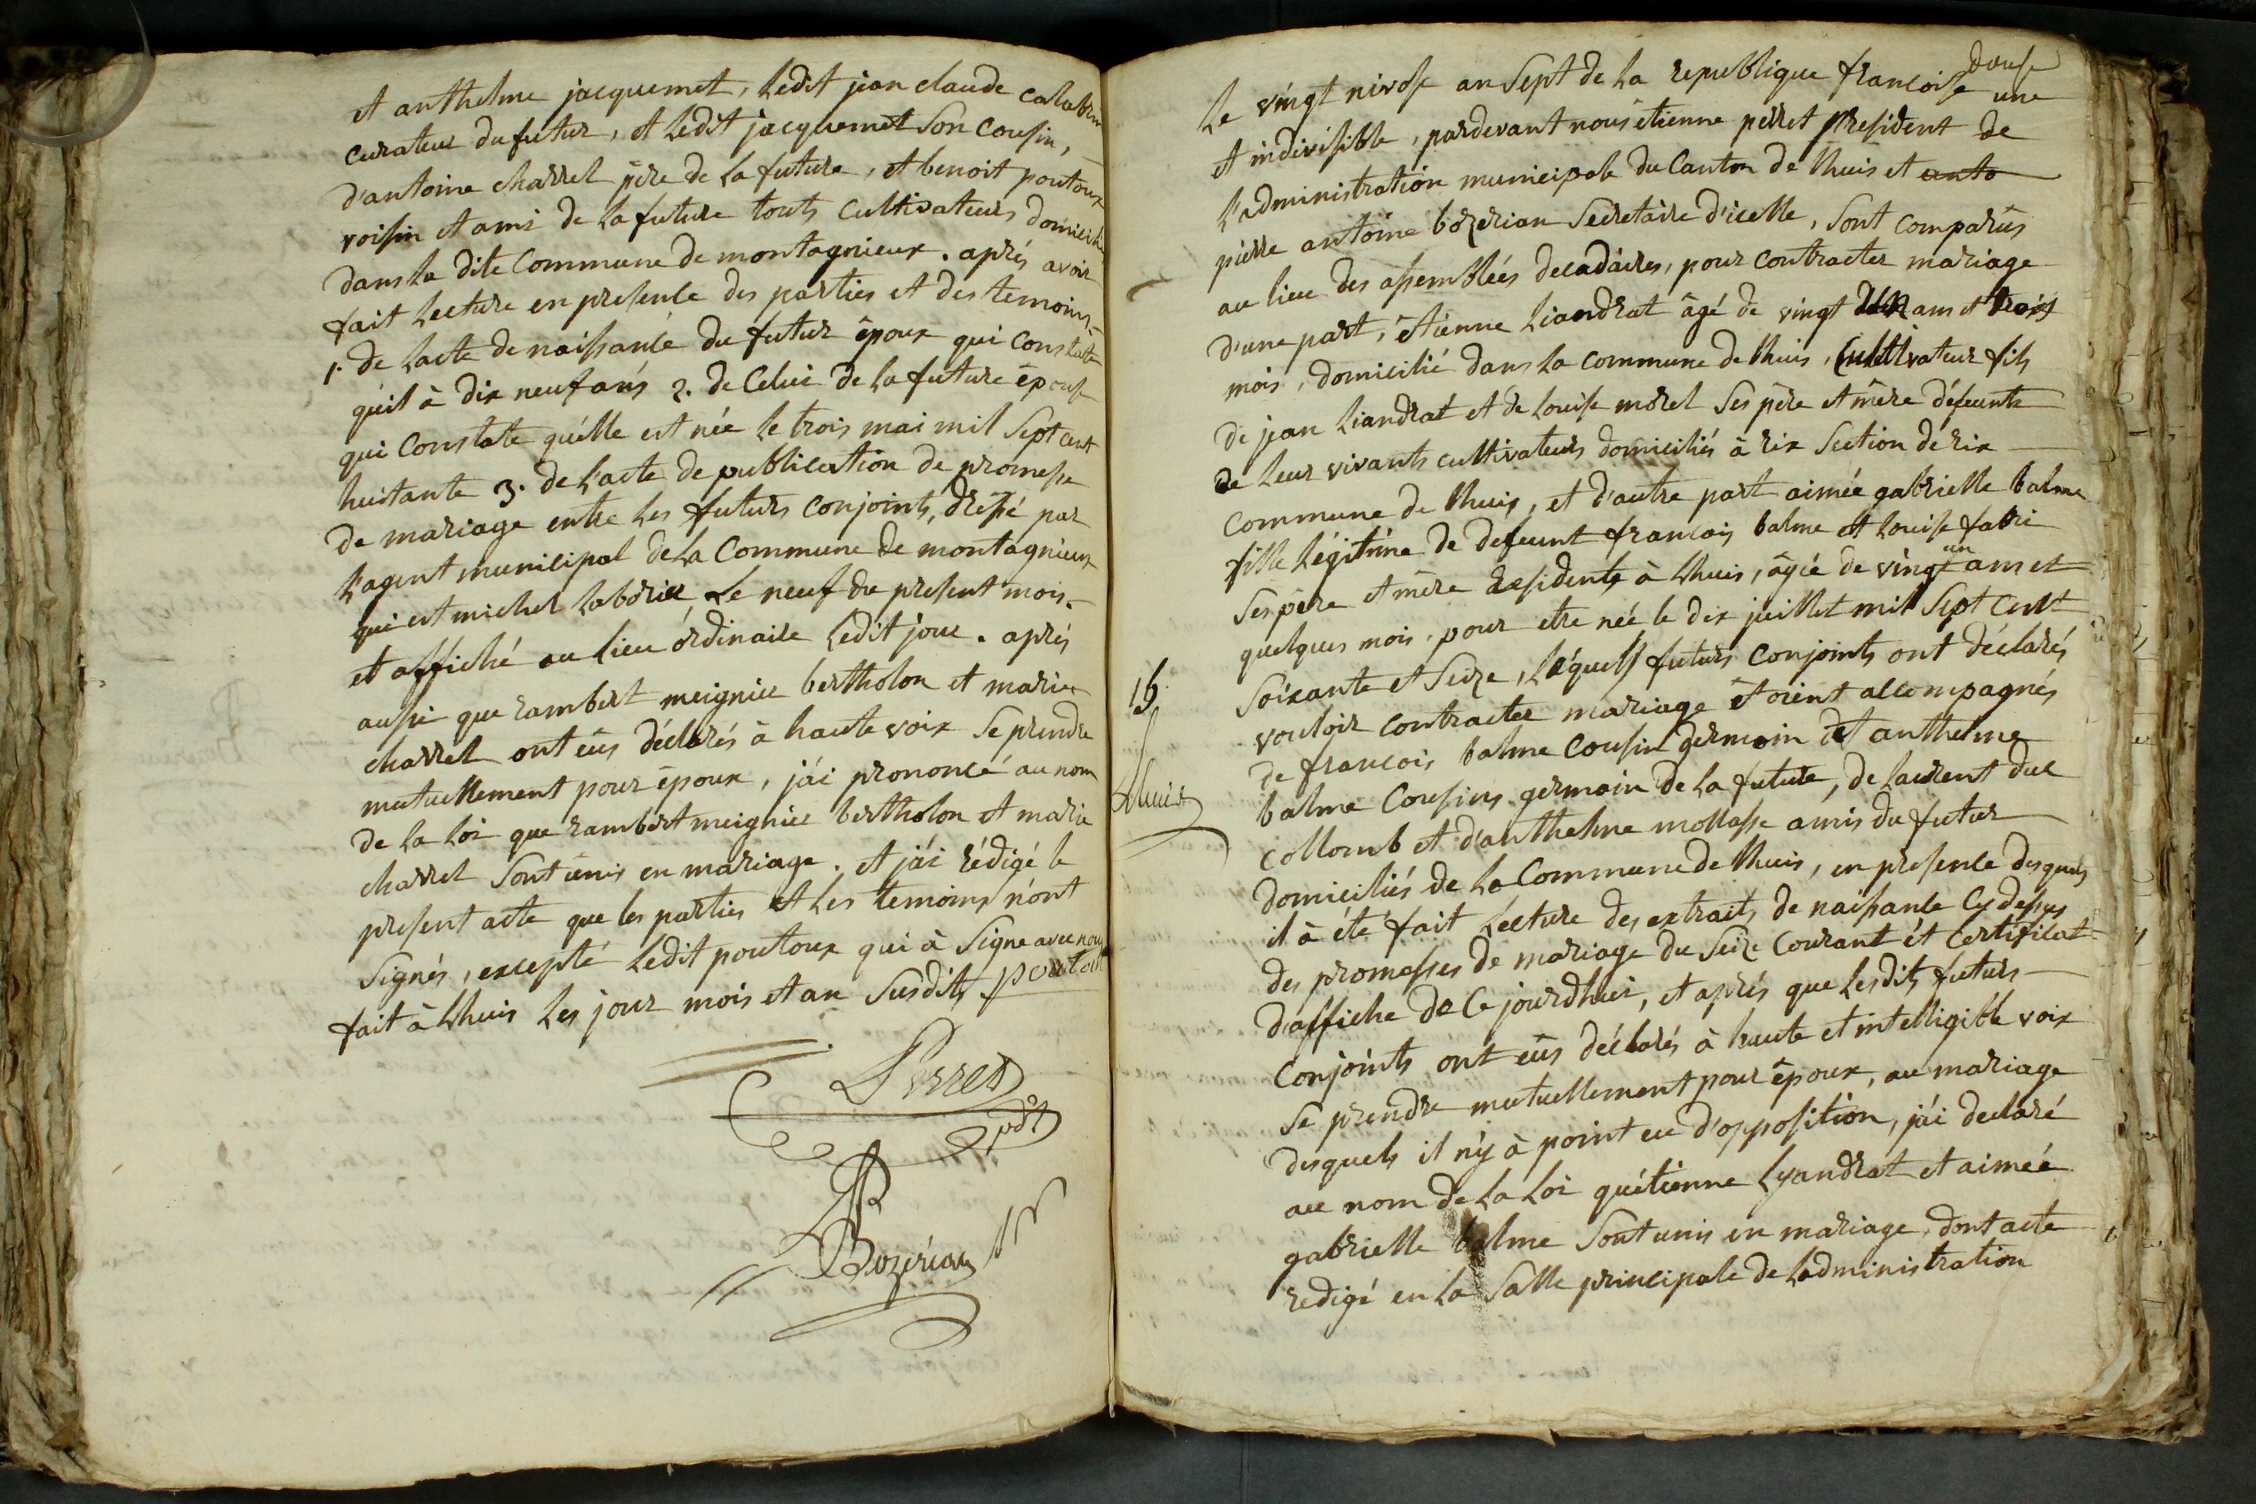 et anthelme jacquemet, Ledit jean claude
curateur du futur, et Ledit jacquemet Son Cousin,
d'antoine charrel père de la future, et benoit poutoux
voisin et ami de la future touts Cultivateurs
dans la dite Commune de montagnieux. aprés avoir
fait Lecture en presence des parties et des temoins
1. de Lacte de naissance du futur époux qui Constate
qu'il à dix neuf ans 2. de Celui de la future épouse
qui Constate qu'elle est née le trois mai mil Sept cent
huitante 3. de L'acte de publication de promesse
de mariage entre Les futurs conjoints, dressé par
L'agent municipal de La Commune de montagnieux
qui est michel Laborier Le neuf du present mois.
et affiché au lieu ordinaire Ledit jour. aprés
aussi que rambert meignier bertholon et marie
charrel ont eüs déclarés à haute voix Se prendre
mutuellement pour époux, j'ai prononcé au nom
de La Loi que rambert meignier bertholon et marie
charrel Sont unis en mariage. et j'ai rédigé le
present acte que les parties et Les temoins n'ont
Signés, excepté Ledit poutoux qui à Signe avec nous
fait à Lhuis Les jour mois et an Susdits poutoux
Perret
pdt
Bozérian
douse
Le vingt nivose an Sept de La republique francoise une
et indivisible, pardevant nous étienne perret President de
L'administration municipale du Canton de Lhuis et anto
pierre antoine bozerian Secretaire d'icelle, Sont comparüs
au lieu des assemblées decadaires, pour Contracter mariage
d'une part, étienne Liandrat âgé de vingt ans et trois
mois, domicilié dans La Commune de Lhuis, Cultivateur fils
de jean Liandrat et de Louise morel Ses père et mère défeunts
de Leur vivants cultivateurs domiciliés à rix Section de rix
Commune de Lhuis, et d'autre part aimée gabrielle balme
fille Légitime de defeunt francois balme et Louise fabri
un
Ses père et mère residents à Lhuis, âgée de vingt ans et
quelques mois, pour etre née le dix juillet mil Sept Cent
Soixante et Seize, Lesquels futurs Conjoints ont déclarés
vouloir Contracter mariage étoient accompagnés
de francois balme Cousin germain et anthelme
balme Cousins germain de La future, de Laurent duc
Collomb et d'anthelme mollasse amis du futur
domiciliés de La Commune de Lhuis, en presence desquels
il à été fait Lecture des extraits de naissance Cydessus
des promesses de mariage du Seize Courant et Certificat
d'affiche de Ce jourdhuir, et aprés que Lesdits futurs
Conjoints ont eüs déclarés à haute et intelligible voix
Se prendre mutuellement pour époux, au mariage
desquels il n'y à point eu d'opposition, j'ai declaré
au nom de La Loi qu'étienne Lyandrat et aimée
gabrielle balme Sont unis en mariage, dont acte
redigé en La Salle principale de Ladministration
16
Lhuis